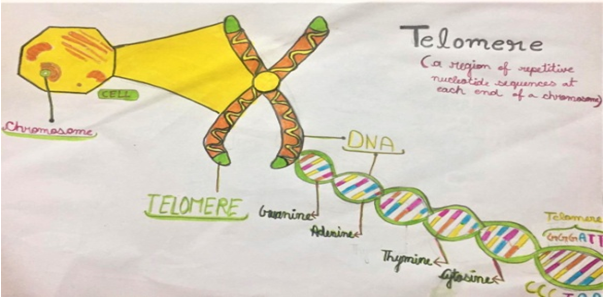 Telomere
(a region of repetitive
nucleotide sequences at
each end of a chromosome)
CELL
Chromosome
DNA
TELOMERE
Guanine
Adenine
Thymine
Cytosine
Telomere
GGGATT
CCC